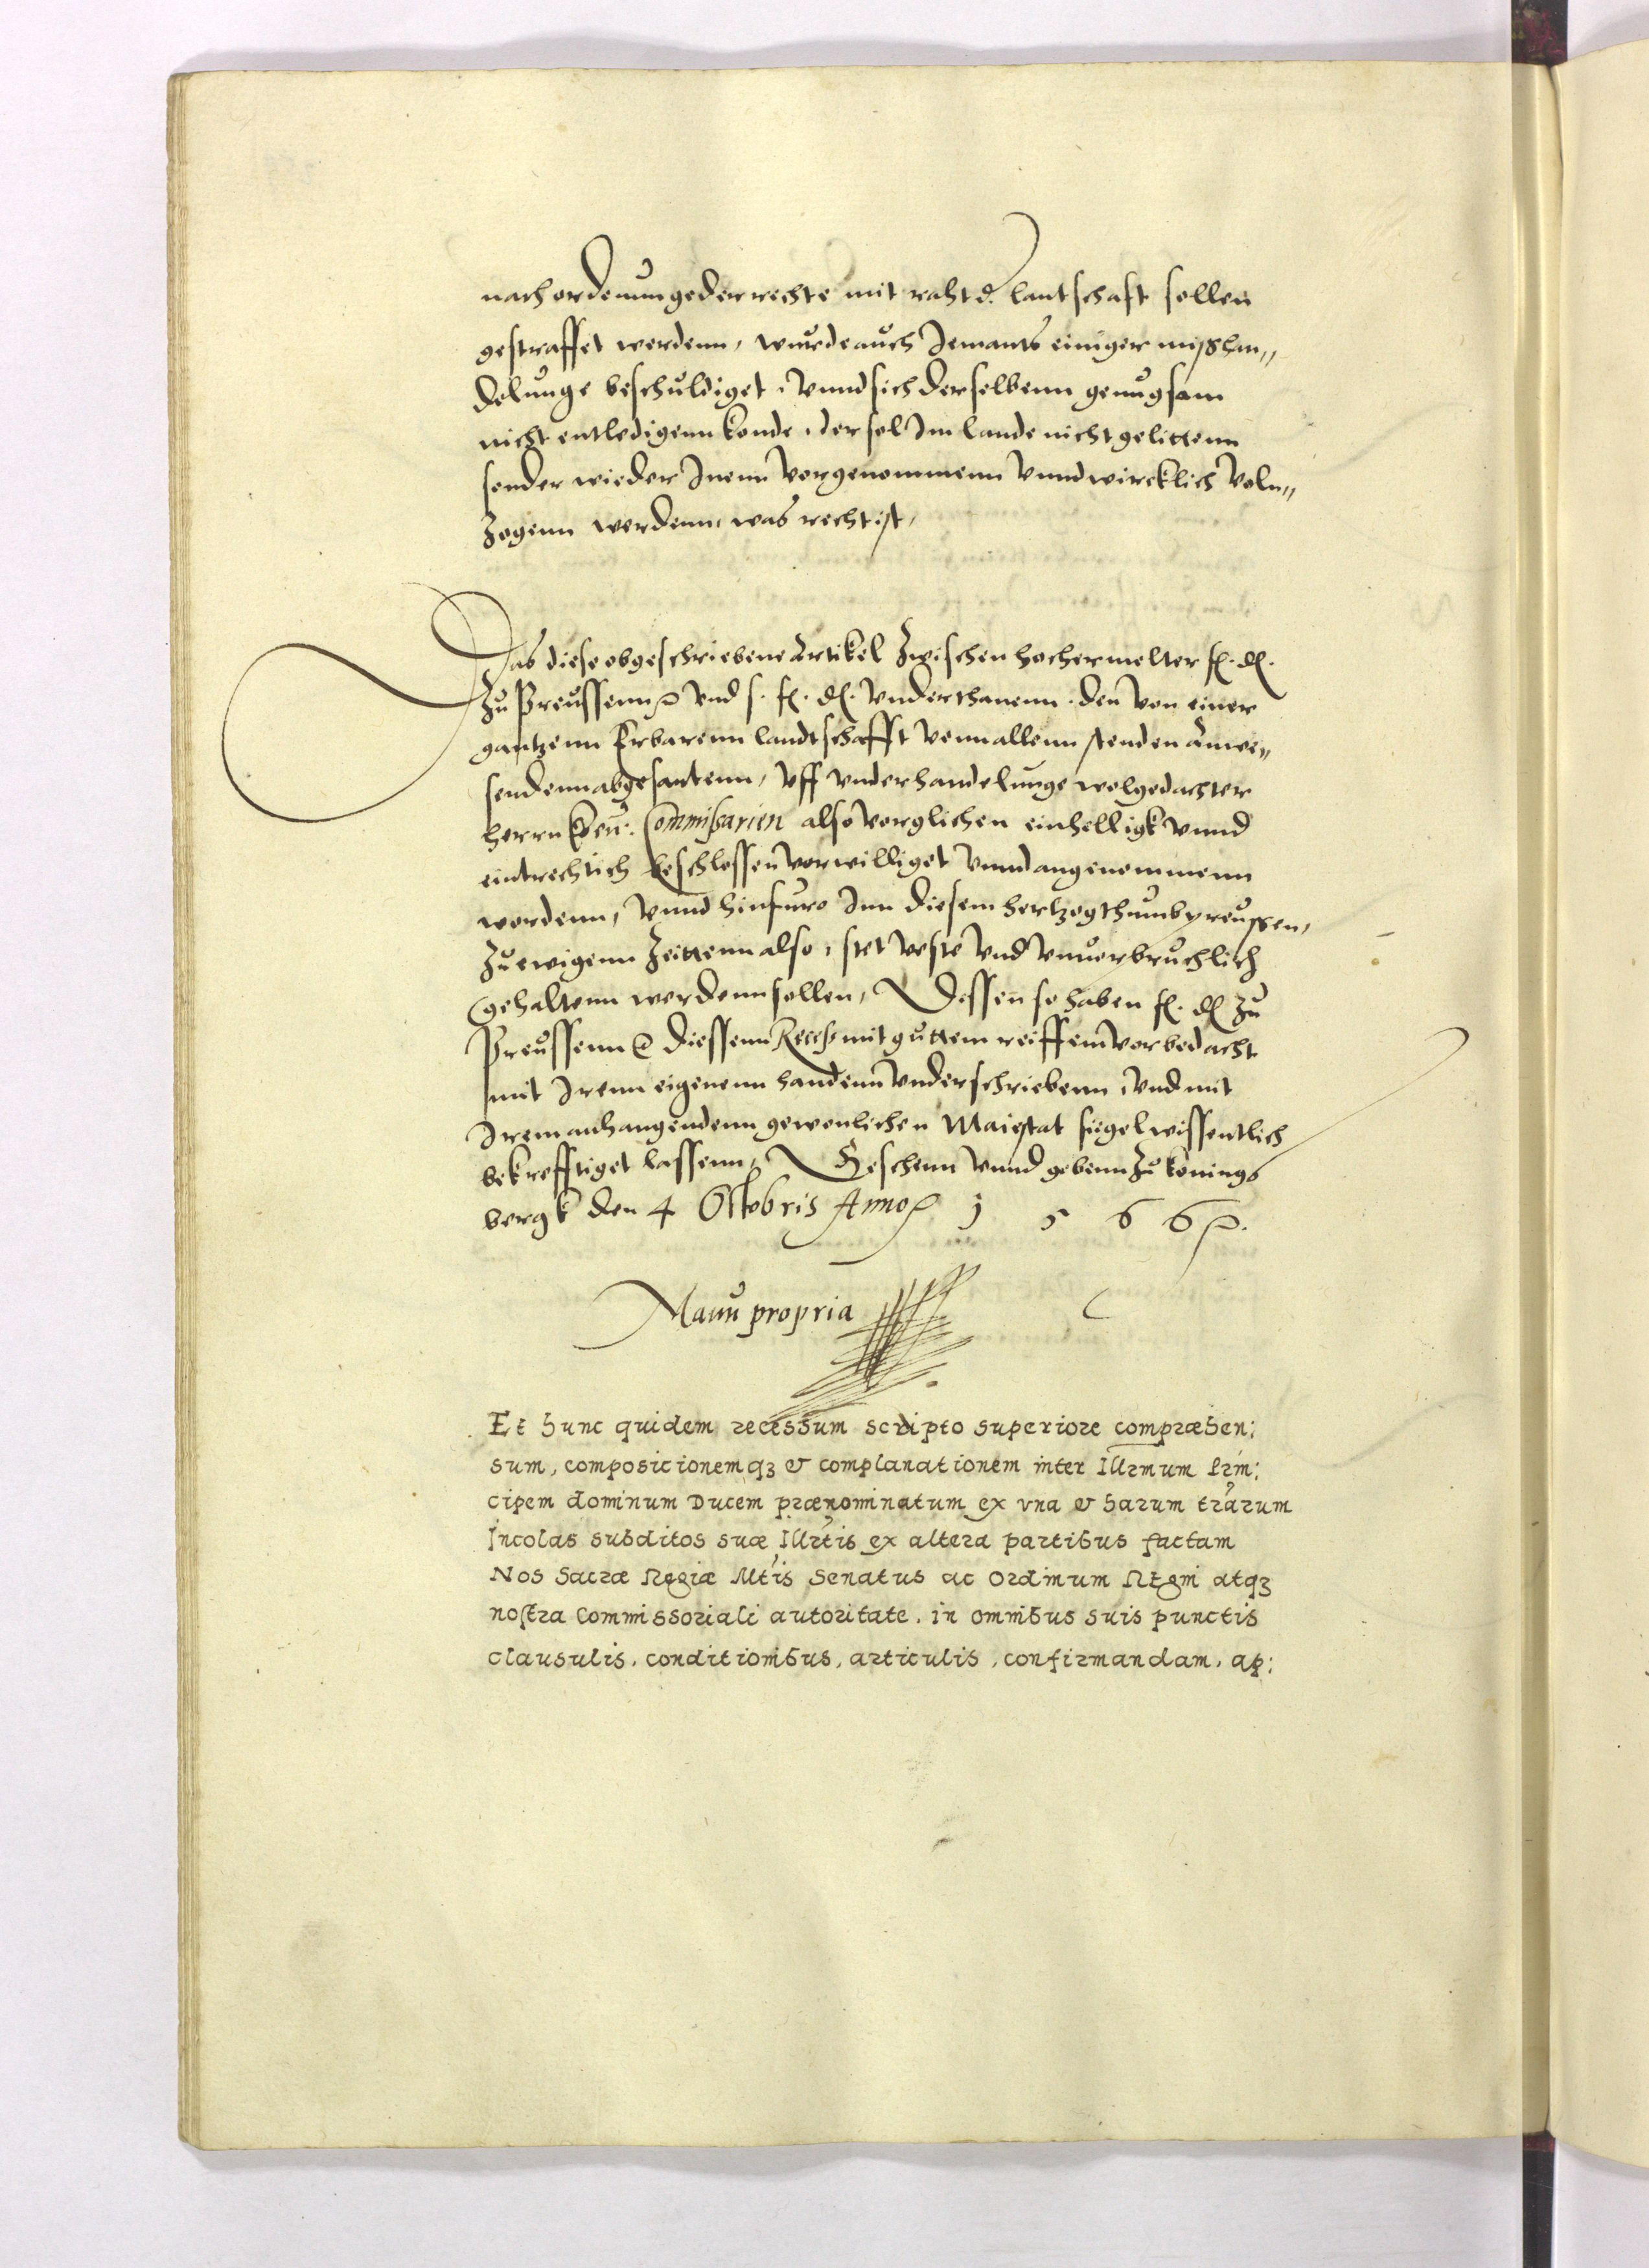 nach ordenunge der rechte mit raht d. lantschaft sollen
gestraffet werdenn, wurde auch Jemants einiger mißhan„
delunge beschuldiget, vnnd sich derselbenn genugsam
nicht entledigenn konde, der sol Im lande nicht gelittenn
sonder wieder Inenn vorgenommenn vnnd wircklich voln„
zogenn werdenn, was recht ist,
Das diese obgeschriebene Artikel zwischen hochermelter f. d.
zu Preussenn vnd s. f. d. vnderthanenn. den von einer
gantzenn Erbarenn landtschafft vonn allenn stenden Anwe„
sendenn abgesantenn, vff vnderhandelunge wolgedachter
herrn Commißarien also vorglichen einhelligk vnnd
eintrechtich beschlossen vorwilliget vnnd angenommenn
wordenn, vnnd hinfuro Inn diesem hertzogthumb preussen,
zu ewigenn zeittenn also, stet veste vnd vnuorbruchlich
gehaltenn werdenn sollen, Dessen so haben f. d. zu
Preussenn diessenn Receß mit guttem reiffem vorbedacht
mit Irenn eigenenn handenn vnderschriebenn, vnd mit
Irem anhangendenn gewonlichen Maiestat siegel wissentlich
bekrefftiget lassenn, Geschenn vnnd gebenn zu konings
bergk den 4 Octobris Anno 1 5 6 6
Manu propria
Et hunc quidem recessum scripto superiore compræhen:
sum, compositionemq3 & complanationem inter Illrmum Prin:
cipem dominum Ducem prænominatum ex vna & harum trarum
Incolas subditos suæ Illrtis ex altera partibus factam
Nos Sacræ Regiæ Mtis Senatus ac Ordinum Regni atq3
nostra Commissoriali autoritate. in omnibus suis punctis
clausulis, conditionibus, articulis, confirmandam, ap: